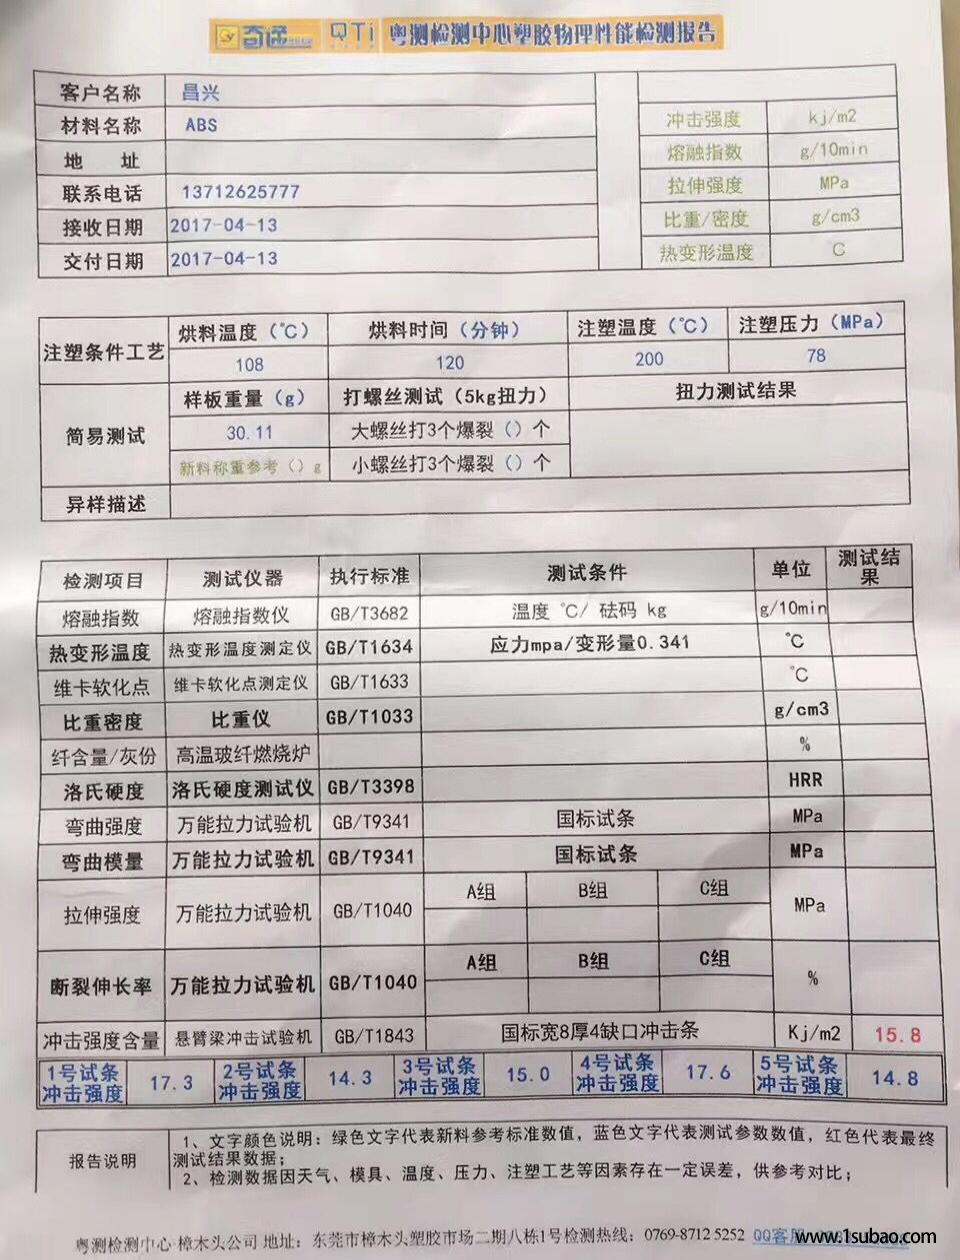 奇逊 QTi 粤测检测中心塑胶物理性能检测报告
客户名称 昌兴
材料名称 ABS 冲击强度 kj/m2
地 址 熔融指数 g/10min
联系电话 13712625777 拉伸强度 MPa
接收日期 2017-04-13 比重/密度 g/cm3
交付日期 2017-04-13 热变形温度 C
注塑条件工艺 烘料温度（℃） 烘料时间（分钟） 注塑温度（℃） 注塑压力（MPa）
108 120 200 78
简易测试 样板重量（g） 打螺丝测试（5kg扭力） 扭力测试结果
30.11 大螺丝打3个爆裂（）个
新料称重参考（）g 小螺丝打3个爆裂（）个
异样描述
检测项目 测试仪器 执行标准 测试条件 单位 测试结果
熔融指数 熔融指数仪 GB/T3682 温度 ℃/ 砝码 kg g/10min
热变形温度 热变形温度测定仪 GB/T1634 应力mpa/变形量0.341 ℃
维卡软化点 维卡软化点测定仪 GB/T1633 ℃
比重密度 比重仪 GB/T1033 g/cm3
纤含量/灰份 高温玻纤燃烧炉 %
洛氏硬度 洛氏硬度测试仪 GB/T3398 HRR
弯曲强度 万能拉力试验机 GB/T9341 国标试条 MPa
弯曲模量 万能拉力试验机 GB/T9341 国标试条 MPa
拉伸强度 万能拉力试验机 GB/T1040 A组 B组 C组 MPa
断裂伸长率 万能拉力试验机 GB/T1040 A组 B组 C组 %
冲击强度含量 悬臂梁冲击试验机 GB/T1843 国标宽8厚4缺口冲击条 Kj/m2 15.8
1号试条冲击强度 17.3 2号试条冲击强度 14.3 3号试条冲击强度 15.0 4号试条冲击强度 17.6 5号试条冲击强度 14.8
报告说明 1、文字颜色说明：绿色文字代表新料参考标准数值，蓝色文字代表测试参数数值，红色代表最终
测试结果数据；
2、检测数据因天气、模具、温度、压力、注塑工艺等因素存在一定误差，供参考对比；
粤测检测中心 樟木头公司 地址：东莞市樟木头塑胶市场二期八栋1号检测热线：0769-8712 5252 QQ客服
www.1subao.com